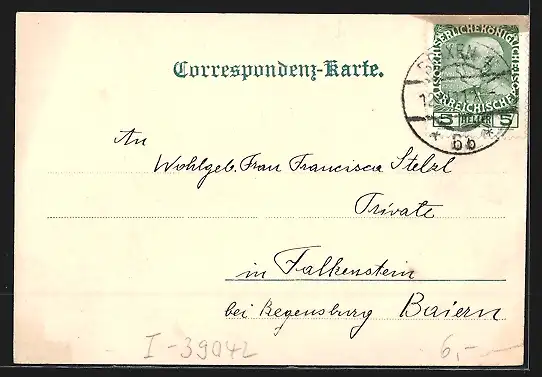 Correspondenz-Karte.
KAISERLICHE KÖNIGLICHE
ÖSTERREICHISCHE
5 HELLER 5
* 6b *
An
Wohlgeb. Frau Francisca Stelzl
Private
in Falkenstein
bei Regensburg Baiern
I-3904L
6,-